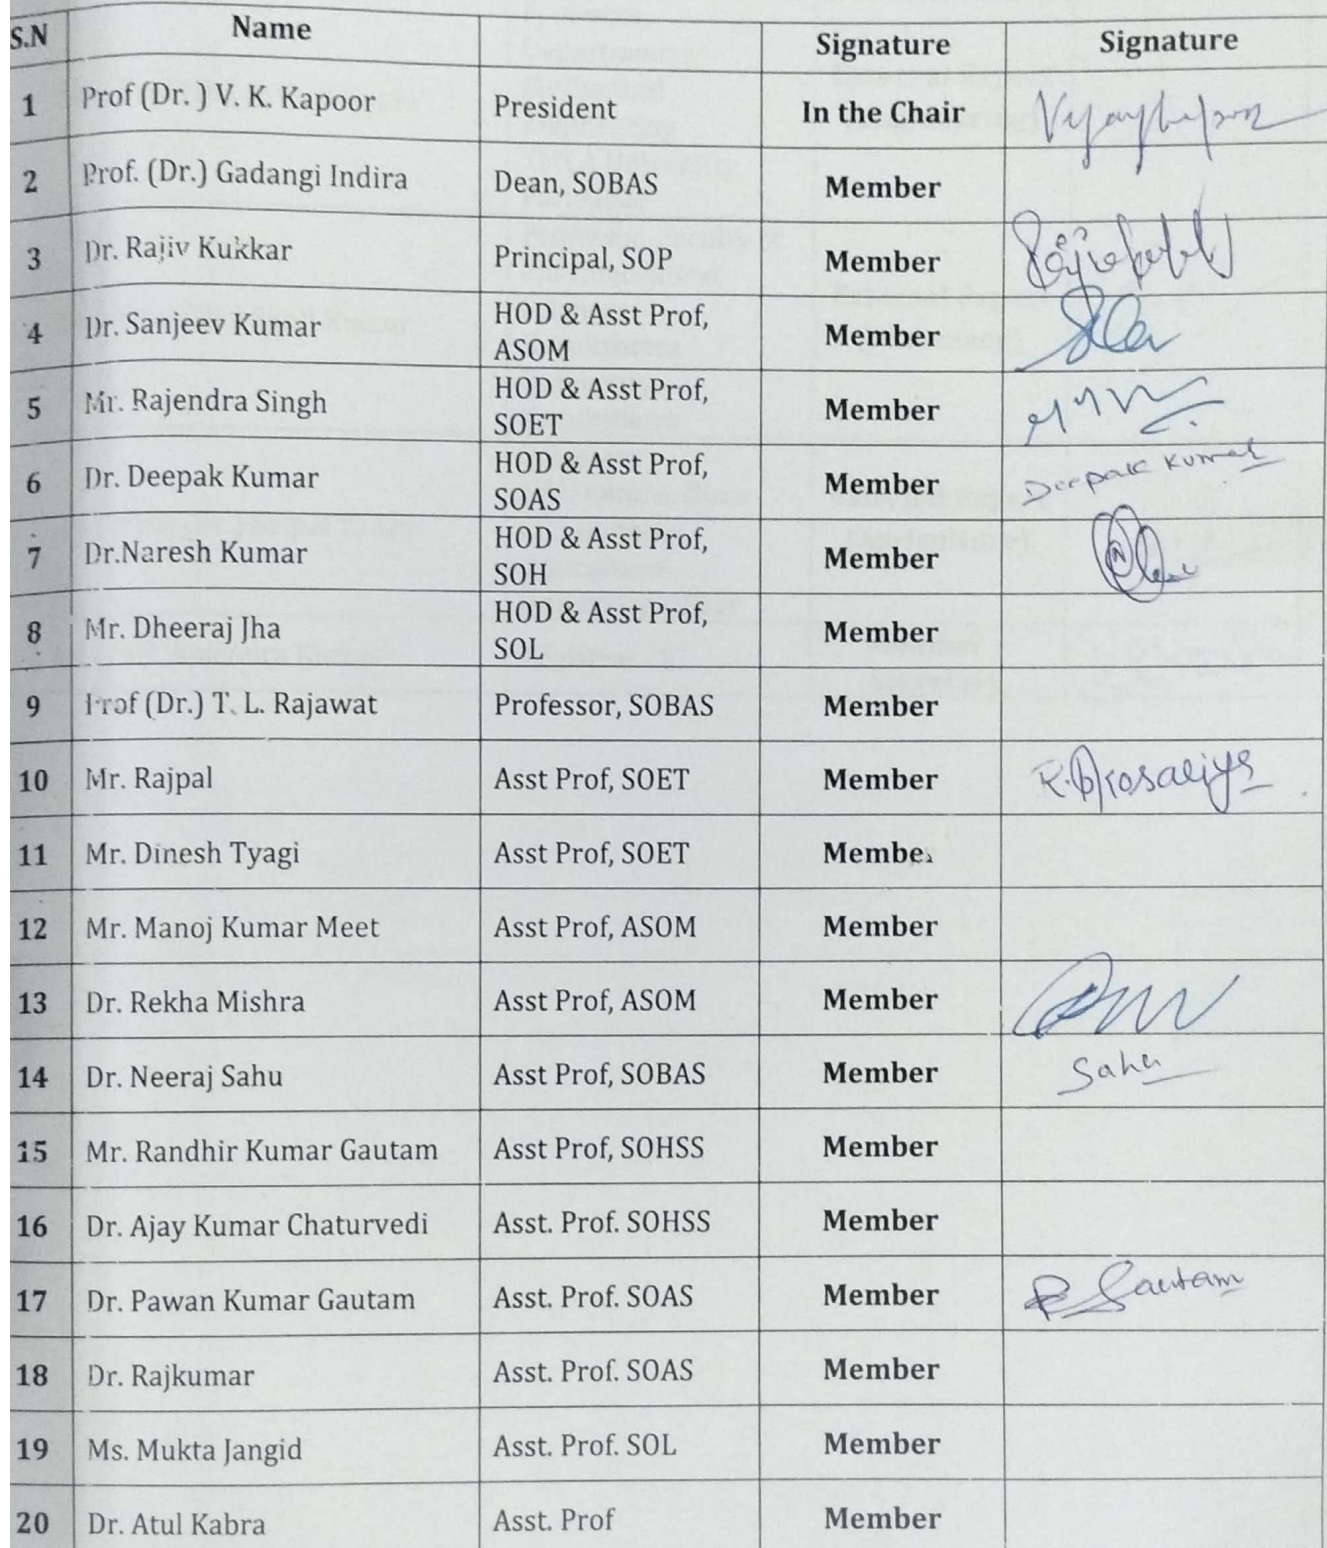 S.N Name Signature Signature
1 Prof (Dr. ) V. K. Kapoor President In the Chair
2 Prof. (Dr.) Gadangi Indira Dean, SOBAS Member
3 Dr. Rajiv Kukkar Principal, SOP Member
4 Dr. Sanjeev Kumar HOD & Asst Prof, Member
ASOM
5 Mr. Rajendra Singh HOD & Asst Prof, Member
SOET
6 Dr. Deepak Kumar HOD & Asst Prof, Member Deepak Kumar
SOAS
7 Dr.Naresh Kumar HOD & Asst Prof, Member
SOH
8 Mr. Dheeraj Jha HOD & Asst Prof, Member
SOL
9 Prof (Dr.) T. L. Rajawat Professor, SOBAS Member
10 Mr. Rajpal Asst Prof, SOET Member
11 Mr. Dinesh Tyagi Asst Prof, SOET Member
12 Mr. Manoj Kumar Meet Asst Prof, ASOM Member
13 Dr. Rekha Mishra Asst Prof, ASOM Member
14 Dr. Neeraj Sahu Asst Prof, SOBAS Member Sahu
15 Mr. Randhir Kumar Gautam Asst Prof, SOHSS Member
16 Dr. Ajay Kumar Chaturvedi Asst. Prof. SOHSS Member
17 Dr. Pawan Kumar Gautam Asst. Prof. SOAS Member P Gautam
18 Dr. Rajkumar Asst. Prof. SOAS Member
19 Ms. Mukta Jangid Asst. Prof. SOL Member
20 Dr. Atul Kabra Asst. Prof Member